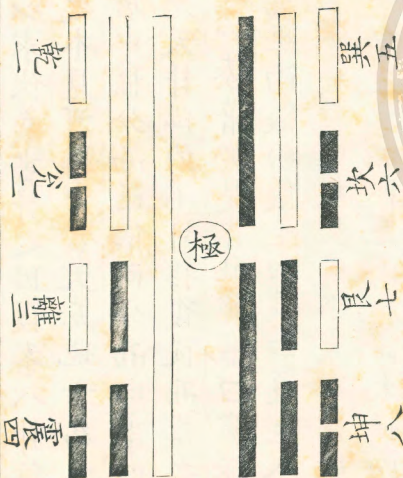 乾一
兊二
離三
震四
極
巽五
坎六
艮七
坤八